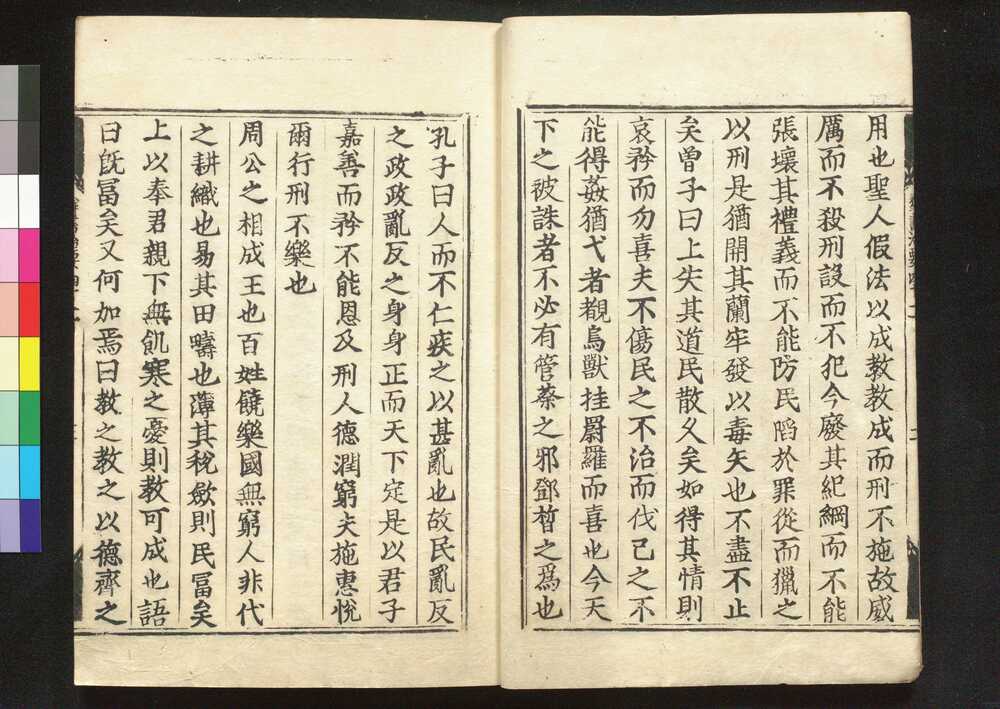 用也聖人假法以成教教成而刑不施故威
厲而不殺刑設而不犯今廢其紀綱而不能
張壞其禮義而不能防民陷於罪從而獵之
以刑是猶開其蘭牢發以毒矢也不盡不止
矣曾子曰上失其道民散久矣如得其情則
哀矜而勿喜夫不傷民之不治而伐己之不
能得姦猶弋者覩鳥獸挂罻羅而喜也今天
下之被誅者不必有管蔡之邪鄧晳之爲也
孔子曰人而不仁疾之以甚亂也故民亂反
之政政亂反之身身正而天下定是以君子
嘉善而矜不能恩及刑人德潤窮夫施惠悅
爾行刑不樂也
周公之相成王也百姓饒樂國無窮人非代
之耕織也易其田疇也薄其稅斂則民冨矣
上以奉君親下無飢寒之憂則教可成也語
曰旣冨矣又何加焉曰教之教之以德齊之